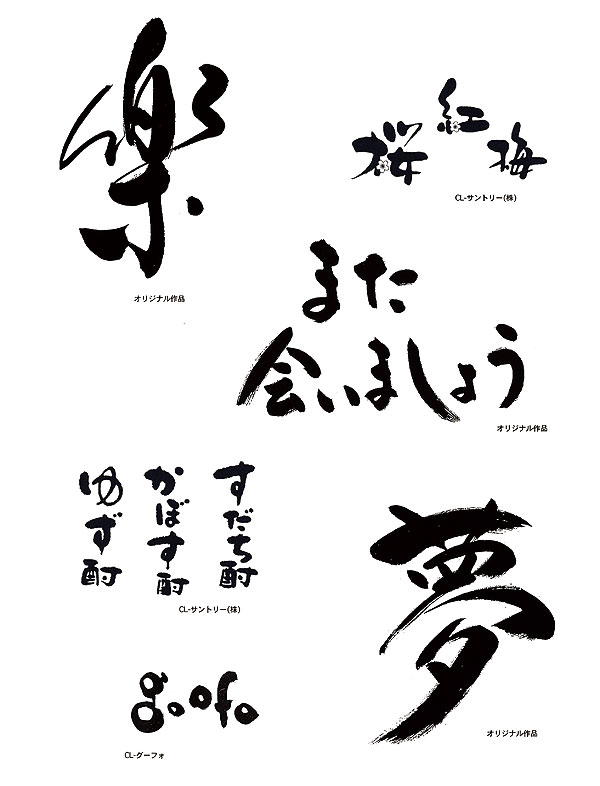 楽
オリジナル作品
紅
桜
梅
CL-サントリー(株)
また
会いましょう
オリジナル作品
すだち酎
かぼす酎
ゆず酎
CL-サントリー(株)
夢
オリジナル作品
goofo
CL-グーフォ